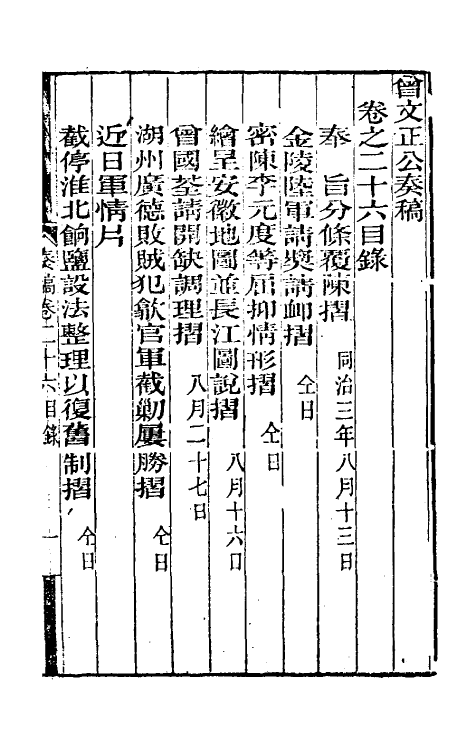 曾文正公奏稿
卷之二十六目錄
奉　旨分條覆陳摺　同治三年八月十三日
金陵陸軍請奬請卹摺　仝日
密陳李元度等屈抑情形摺　仝日
繪呈安徽地圖並長江圖說摺　八月十六日
曾國荃請開缺調理摺　八月二十七日
湖州廣德敗賊犯歙官軍截剿屢勝摺　仝日
近日軍情片
截停淮北餉鹽設法整理以復舊制摺　仝日
奏稿卷二十六目錄　一